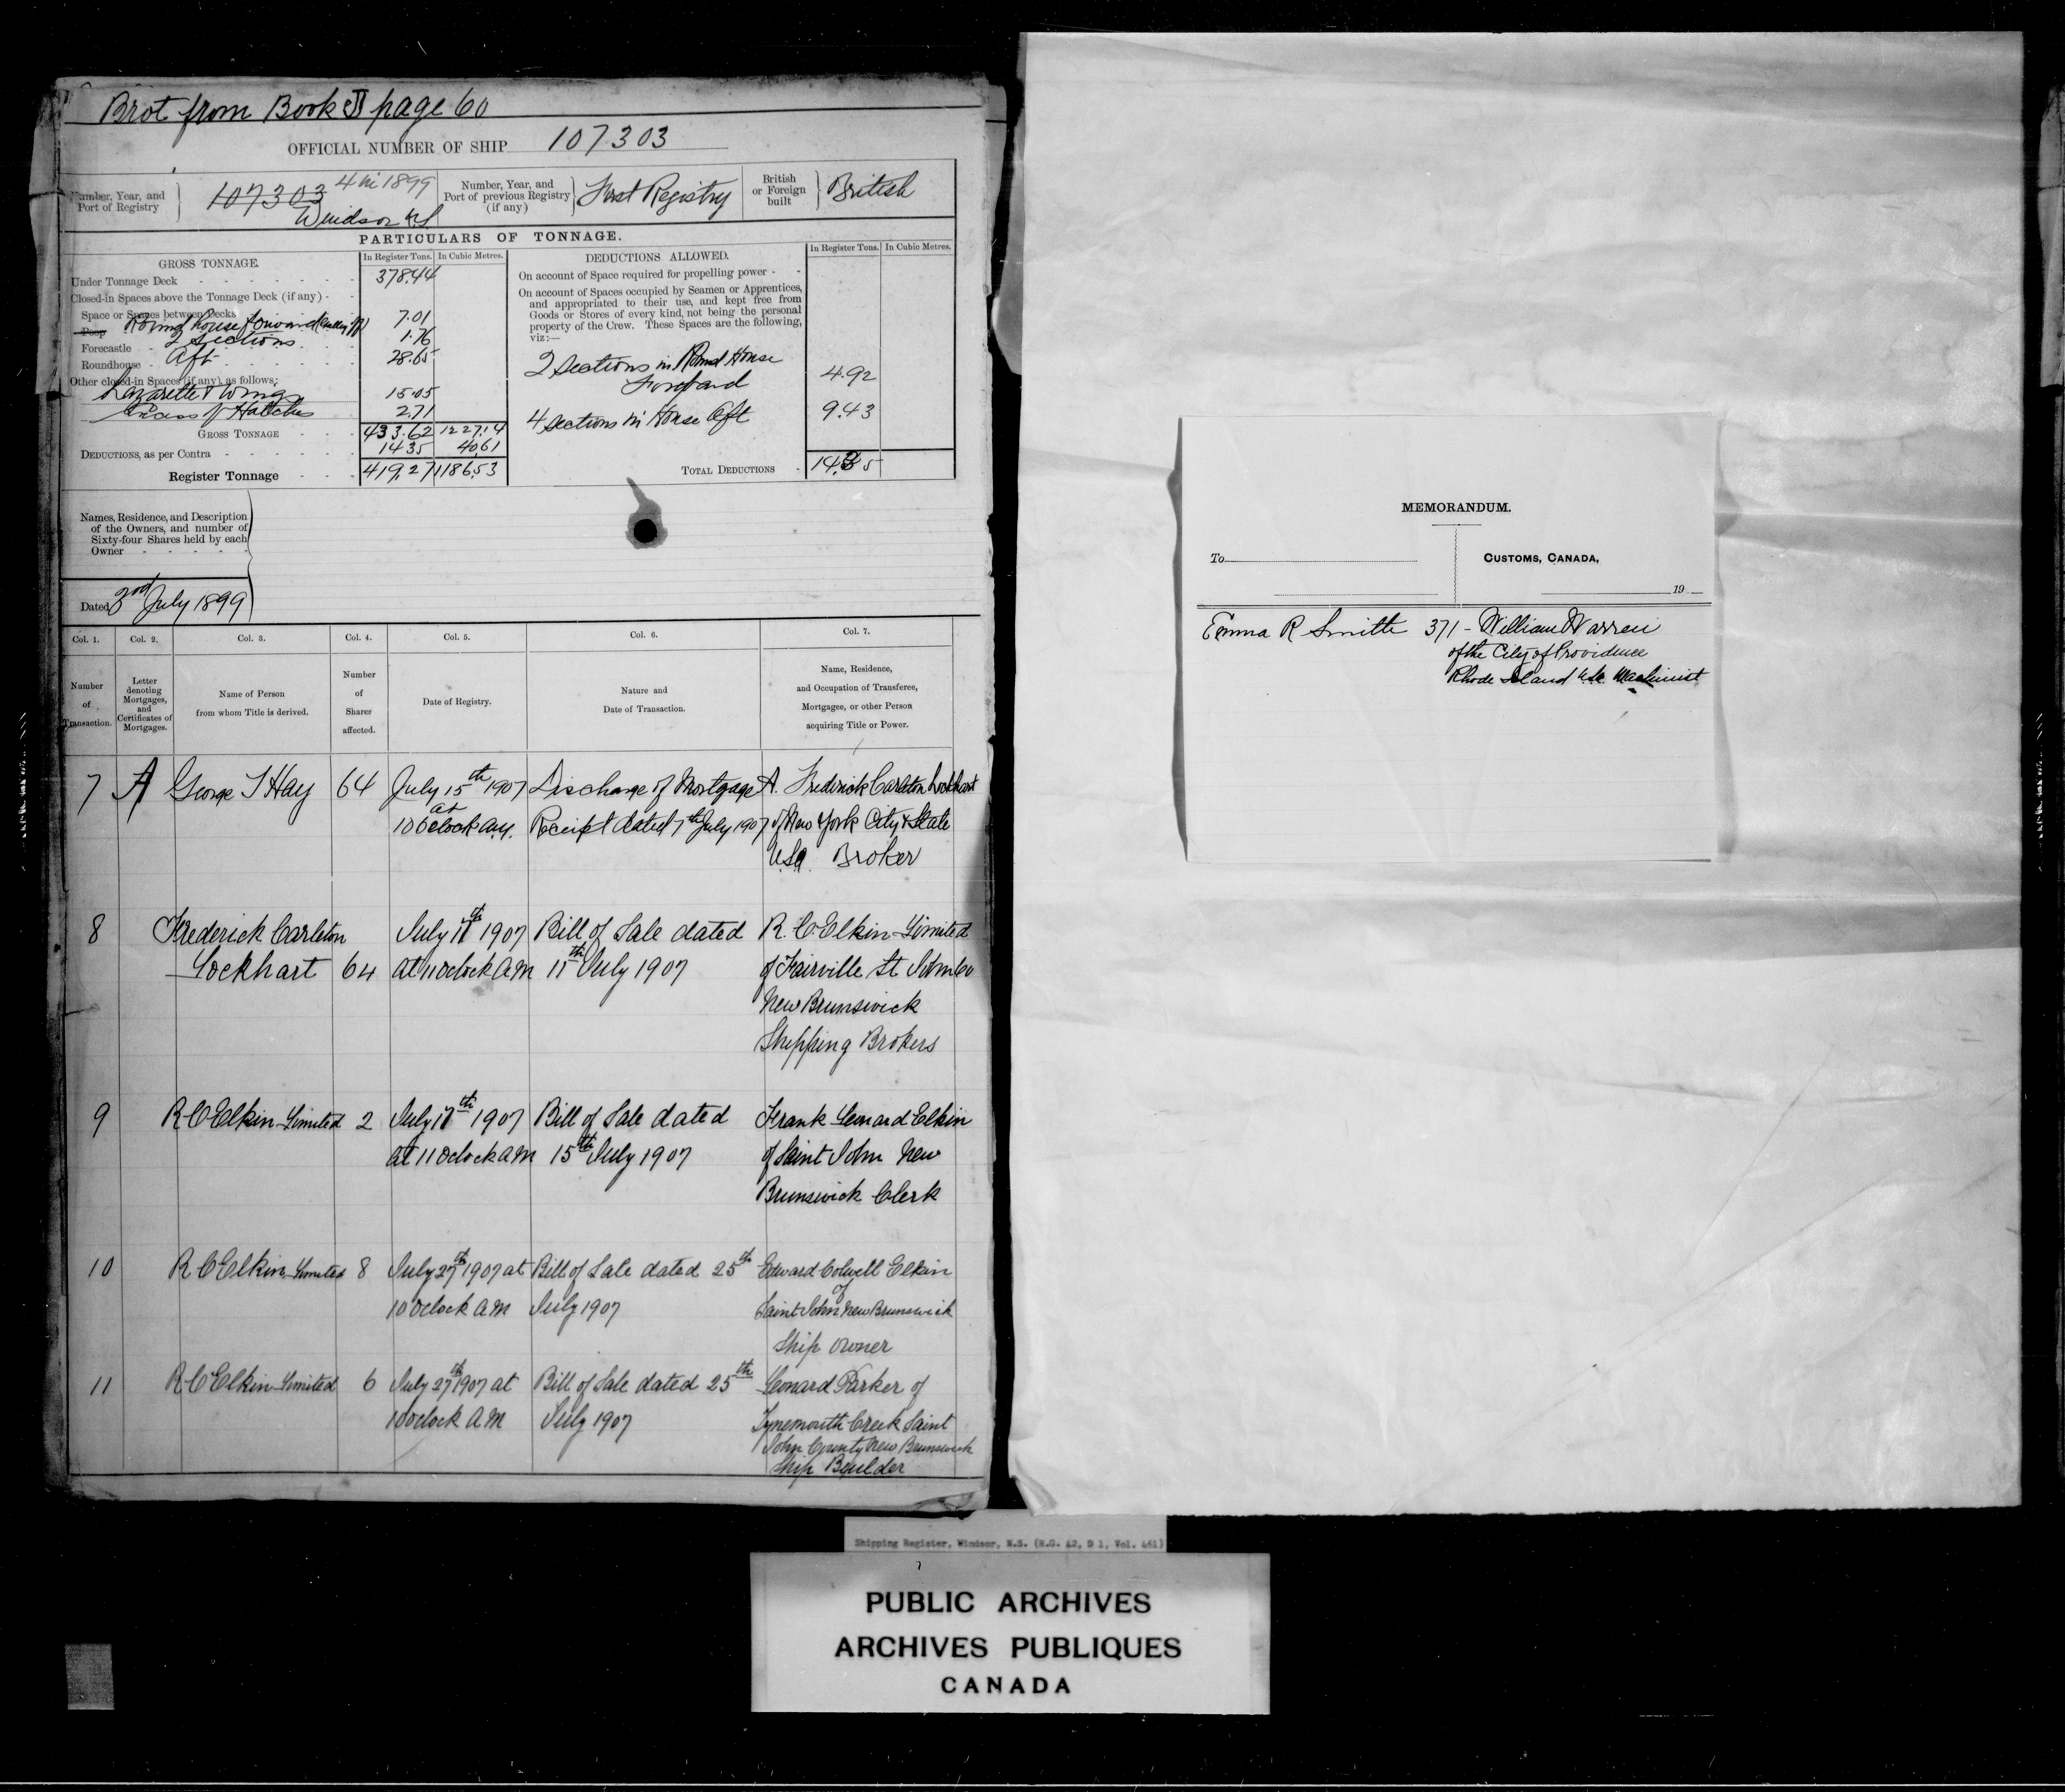 Brot from Book J page 60
OFFICIAL NUMBER OF SHIP 107303
Number, Year, and Port of Registry
107303 4 in 1899
Windsor NS
Number, Year, and Port of previous Registry (if any)
First Registry
British or Foreign built
British
PARTICULARS OF TONNAGE.
GROSS TONNAGE.
In Register Tons. In Cubic Metres.
Under Tonnage Deck 378.44
Closed-in Spaces above the Tonnage Deck (if any)
Space or Spaces between Decks
Poop Round house forward 7.01
Forecastle 2 Sections 1.76
Roundhouse Aft 28.65
Other closed-in Spaces (if any), as follows:
Lazarette & Wings 15.05
Excess of Hatches 2.71
GROSS TONNAGE 433.62 1227.14
DEDUCTIONS, as per Contra 14.35 40.61
Register Tonnage 419.27 1186.53
DEDUCTIONS ALLOWED.
In Register Tons. In Cubic Metres.
On account of Space required for propelling power
On account of Spaces occupied by Seamen or Apprentices,
and appropriated to their use, and kept free from
Goods or Stores of every kind, not being the personal
property of the Crew. These Spaces are the following,
viz:—
2 Sections in Round House
Forward 4.92
4 Sections in House Aft 9.43
TOTAL DEDUCTIONS 14.35
Names, Residence, and Description
of the Owners, and number of
Sixty-four Shares held by each
Owner
Dated 3rd July 1899
Col. 1. Col. 2. Col. 3. Col. 4. Col. 5. Col. 6. Col. 7.
Number of Transaction.
Letter denoting Mortgages, and Certificates of Mortgages.
Name of Person from whom Title is derived.
Number of Shares affected.
Date of Registry.
Nature and Date of Transaction.
Name, Residence, and Occupation of Transferee, Mortgagee, or other Person acquiring Title or Power.
7 A George T Hay 64 July 15th 1907 Discharge of Mortgage A. Frederick Carleton Lockhart
at 10 Oclock a.m. Receipt dated 7th July 1907 of New York City & State
USA Broker
8 Frederick Carleton July 17th 1907 Bill of Sale dated R. C. Elkin Limited
Lockhart 64 at 11 Oclock AM 11th July 1907 of Fairville St John Co
New Brunswick
Shipping Brokers
9 R C Elkin Limited 2 July 17th 1907 Bill of Sale dated Frank Leonard Elkin
at 11 Oclock AM 15th July 1907 of Saint John New
Brunswick Clerk
10 R C Elkin Limited 8 July 27th 1907 at Bill of Sale dated 25th Edward Colwell Elkin
10 Oclock AM July 1907 of Saint John New Brunswick
Ship Owner
11 R C Elkin Limited 6 July 27th 1907 at Bill of Sale dated 25th Leonard Parker of
10 Oclock AM July 1907 Tynemouth Creek Saint
John County New Brunswick
Ship Builder
MEMORANDUM.
To
CUSTOMS, CANADA,
19
Emma R Smith 371 - William Warren
of the City of Providence
Rhode Island USA Machinist
Shipping Register, Windsor, N.S. (R.G. 42, D 1, Vol. 461)
PUBLIC ARCHIVES
ARCHIVES PUBLIQUES
CANADA